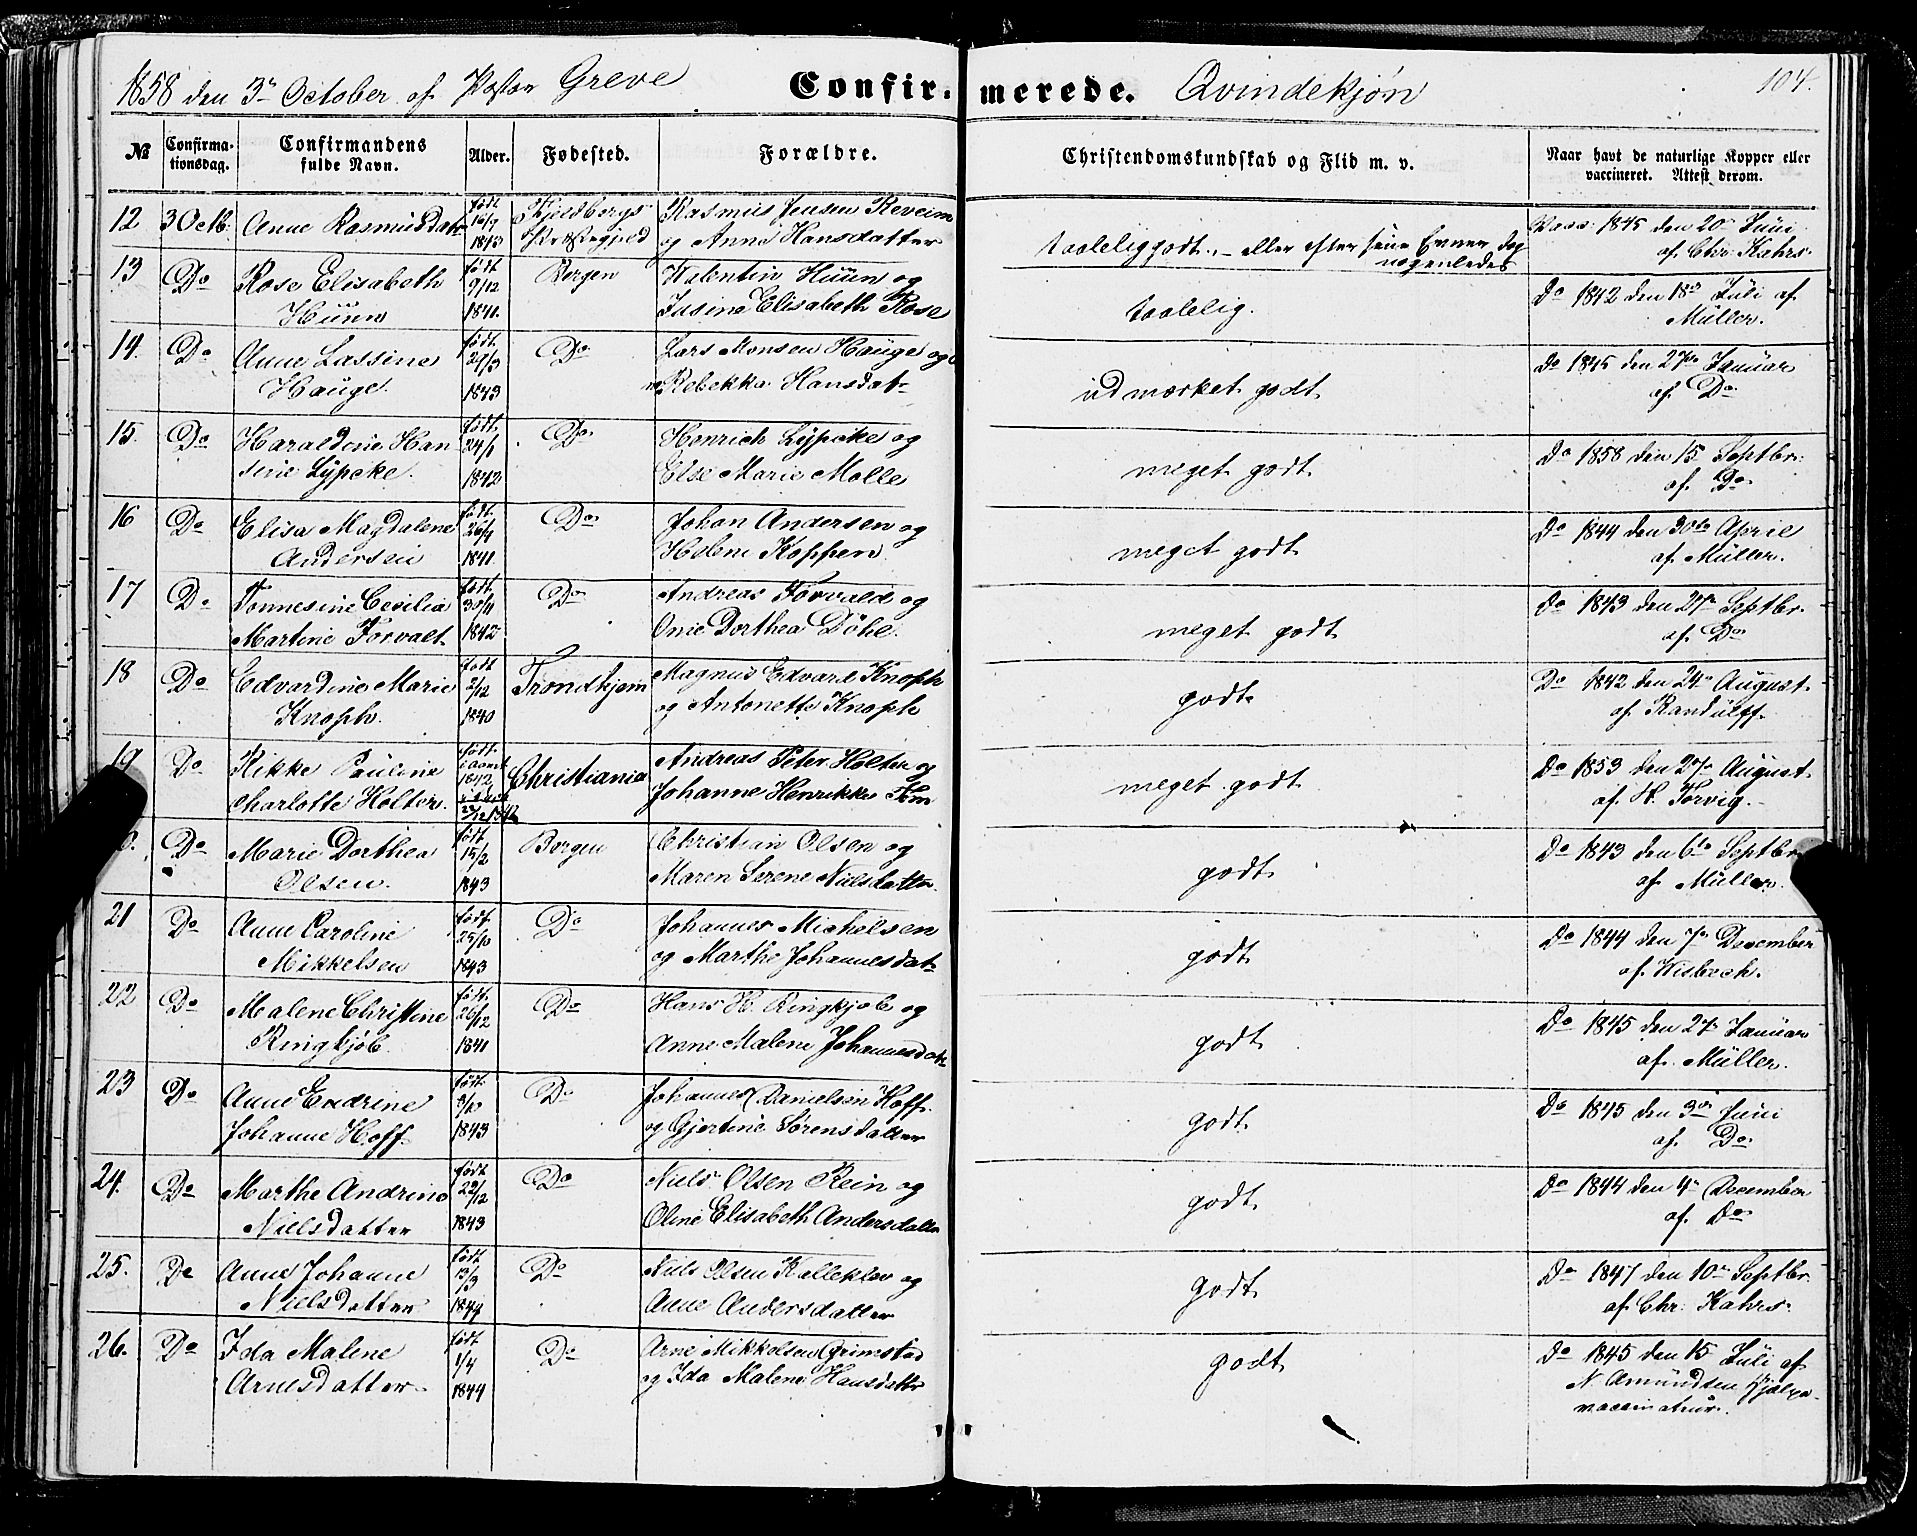 1858 den 3die October af Pastor Greve Confirmerede. Qvindekjøn 104.
№ Confirmationsdag. Confirmandens fulde Navn. Alder. Fødested. Forældre. Christendomskundskab og Flid m. v. Naar havt de naturlige Kopper eller vaccineret. Attest derom.
12 3 Octb. Anne Rasmusdatr født 16/7 1843 Fjeldbergs Rasmus Jensen Reveim Vacc: 1845 den 20de Juni
Præstegjeld og Anna Hansdatter taalelig godt, – eller efter sine Evner dog nogenledes af Chr. Kahrs.
13 Do Rose Elisabeth født 9/12 1841. Bergen Valentin Hüün og Do 1842 den 18de Juli af
Hüün Elisabeth Rose taalelig. Müller.
14. Do Anne Lassine født 1843 Do Lars Monsen Hauge og Do 1845 den 27de Januar
Hauge. Rebekka Hansdatr udmærket godt af Do
15. Do Haraldine Han født 24/1 1842 Do Henrich Lÿpcke og Do 1858 den 15 Septbr:
sine Lÿpcke. Else Marie Molle meget godt af Do
16 Do Elisa Magdalene født 26/9 1841. Do Johan Andersen og Do 1844 den 30te April
Andersen Helene Koppen meget godt af Müller.
17 Do Tonnesine Cecilia født 30/11 1842 Do Andreas Forvald og Do 1843 den 27de Septbr.
Martine Forvalt Dorthea Döhl. meget godt af Do
18 Do Edvardine Marie født 2/12 1840 Trondhjem Magnus Edvard Knoph Do 1842 den 24de August
Knoph. og Antonette Knoph godt af Randulff.
19 Do Rikke Pauline født 1842 Christiania Andreas Peter Holter og Do 1853 den 27de August
Charlotte Holter. Johanne Henrikke meget godt af H. Torvig.
Do Marie Dorthea født 15/2 1843 Bergen Christian Olsen og Do 1843 den 6te Septbr
Olsen. Maren Serene Nielsdatter. godt af Müller.
21 Do Anne Caroline født 25/10 1843 Do Johannes Michelsen Do 1844 den 7de December
Mikkelsen og Marthe Johannesdatr godt af Wisbech.
22 Do Malene Christine født 26/12 1841 Do Hans H. Ringkjøb og Do 1845 den 27de Januar
Ringkjöb. Anne Malene Johannesdatr godt af Müller.
23 Do Anne Endrine født 1843 Do Johannes Danielsen Hoff. Do 1845 den 3die Juni
Johanne Hoff og Gjertine Sørensdatter godt af Do
24. Do Marthe Andrine født 22/12 1843 Do Niels Olsen Rein og Do 1844 den 4de December
Nielsdatter Oline Elisabeth Andersdatter godt af Do
25. Do Anne Johanne født 13/3 1844 Do Niels Olsen Kalleklev og Do 1847 den 10de Septbr.
Nielsdatter Anne Andersdatter godt af Chr: Kahrs.
26. Do Ida Malene født 1/4 1844 Do Arne Mikkelsen Grimstad Do 1845 den 15 Juli af
Arnesdatter og Ida Malene Hansdatter godt N. Amundsen Hjelpe-
vaccinateur.